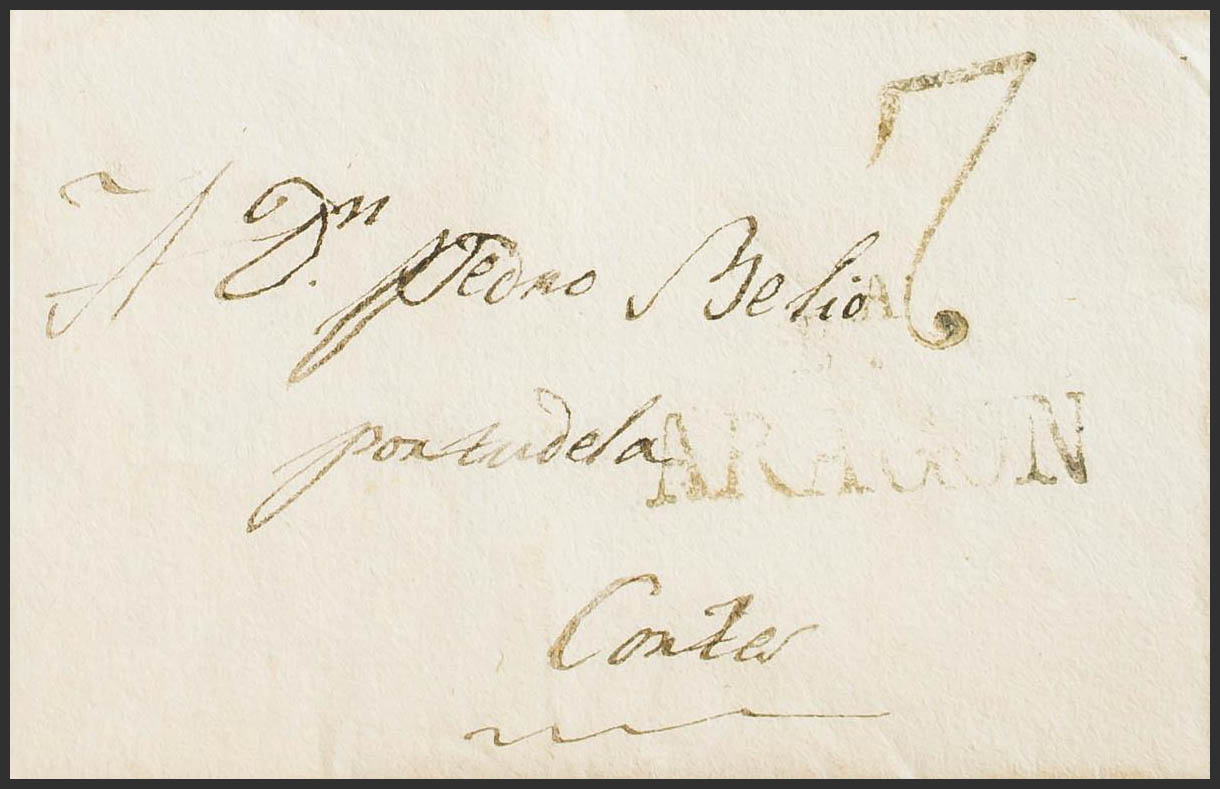 7
A Dn. Pedro Belio
por tudela
ARAGON
Cortes